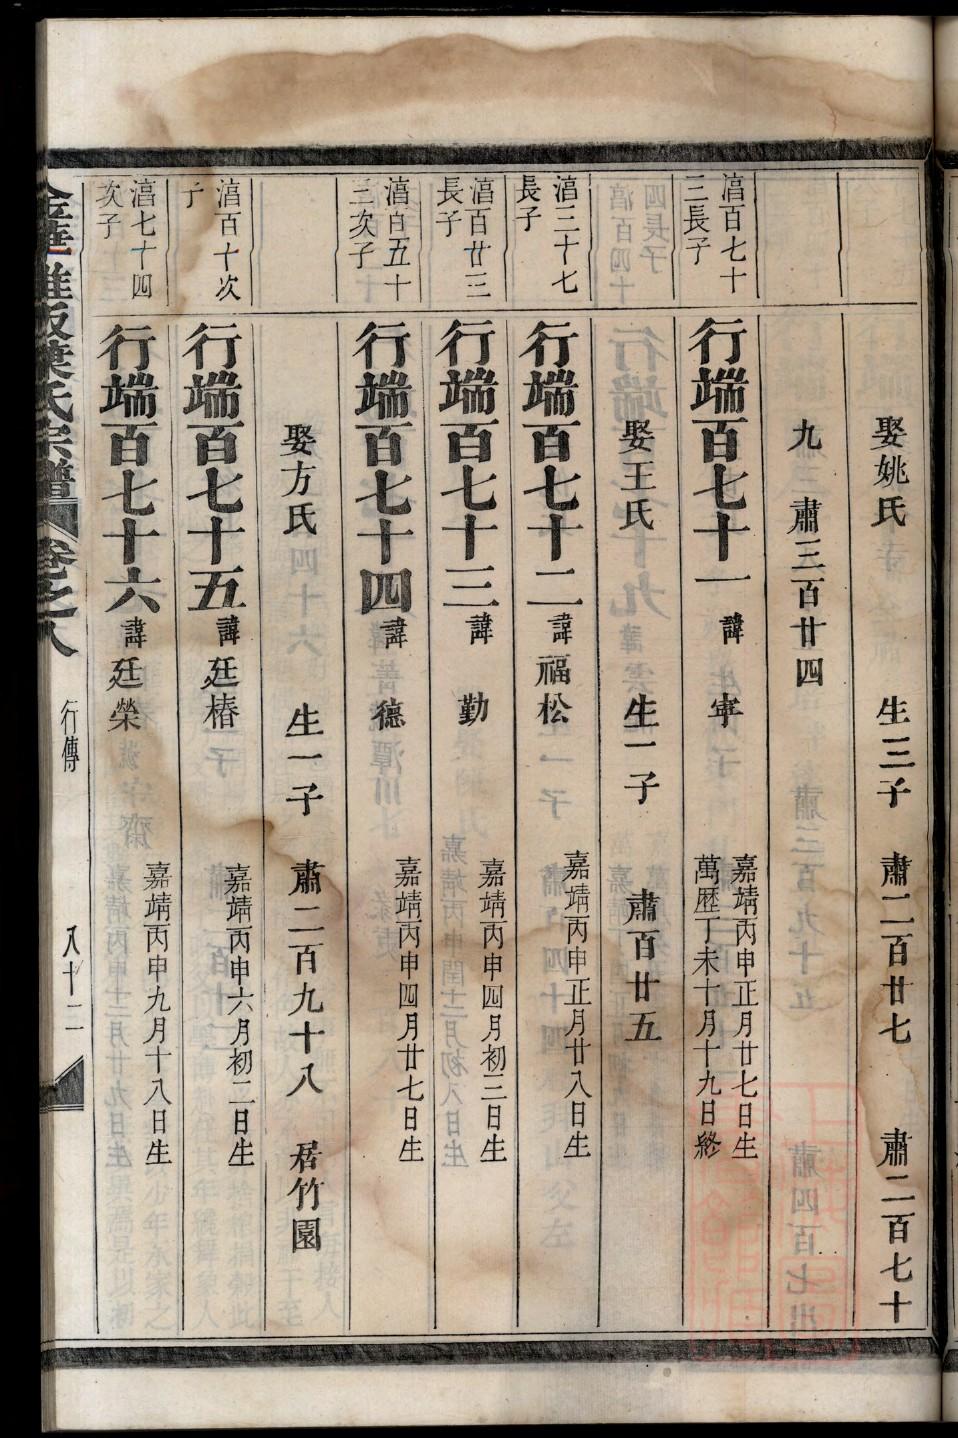 娶姚氏 生三子 肅二百廿七 肅二百七十
九 肅三百廿四
滈百七十
三長子
行端百七十一 諱寕
嘉靖丙申正月廿七日生
萬歷丁未十月十九日終
娶王氏 生一子 肅百廿五
滈三十七
長子
行端百七十二 諱福松
嘉靖丙申正月廿八日生
滈百廿三
長子
行端百七十三 諱勤
嘉靖丙申四月初三日生
滈百五十
三次子
行端百七十四 諱德
嘉靖丙申四月廿七日生
娶方氏 生一子 肅二百九十八 居竹園
滈百十次
子
行端百七十五 諱廷椿
嘉靖丙申六月初二日生
滈七十四
次子
行端百七十六 諱廷榮
嘉靖丙申九月十八日生
氏宗譜 卷之八 行傳 八十二